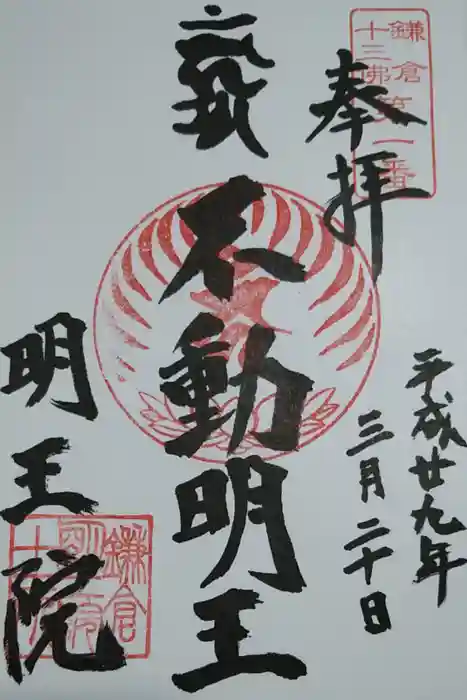 鎌倉
十三佛第一番
奉拝
平成廿九年
三月二十日
不動明王
明王院
鎌倉